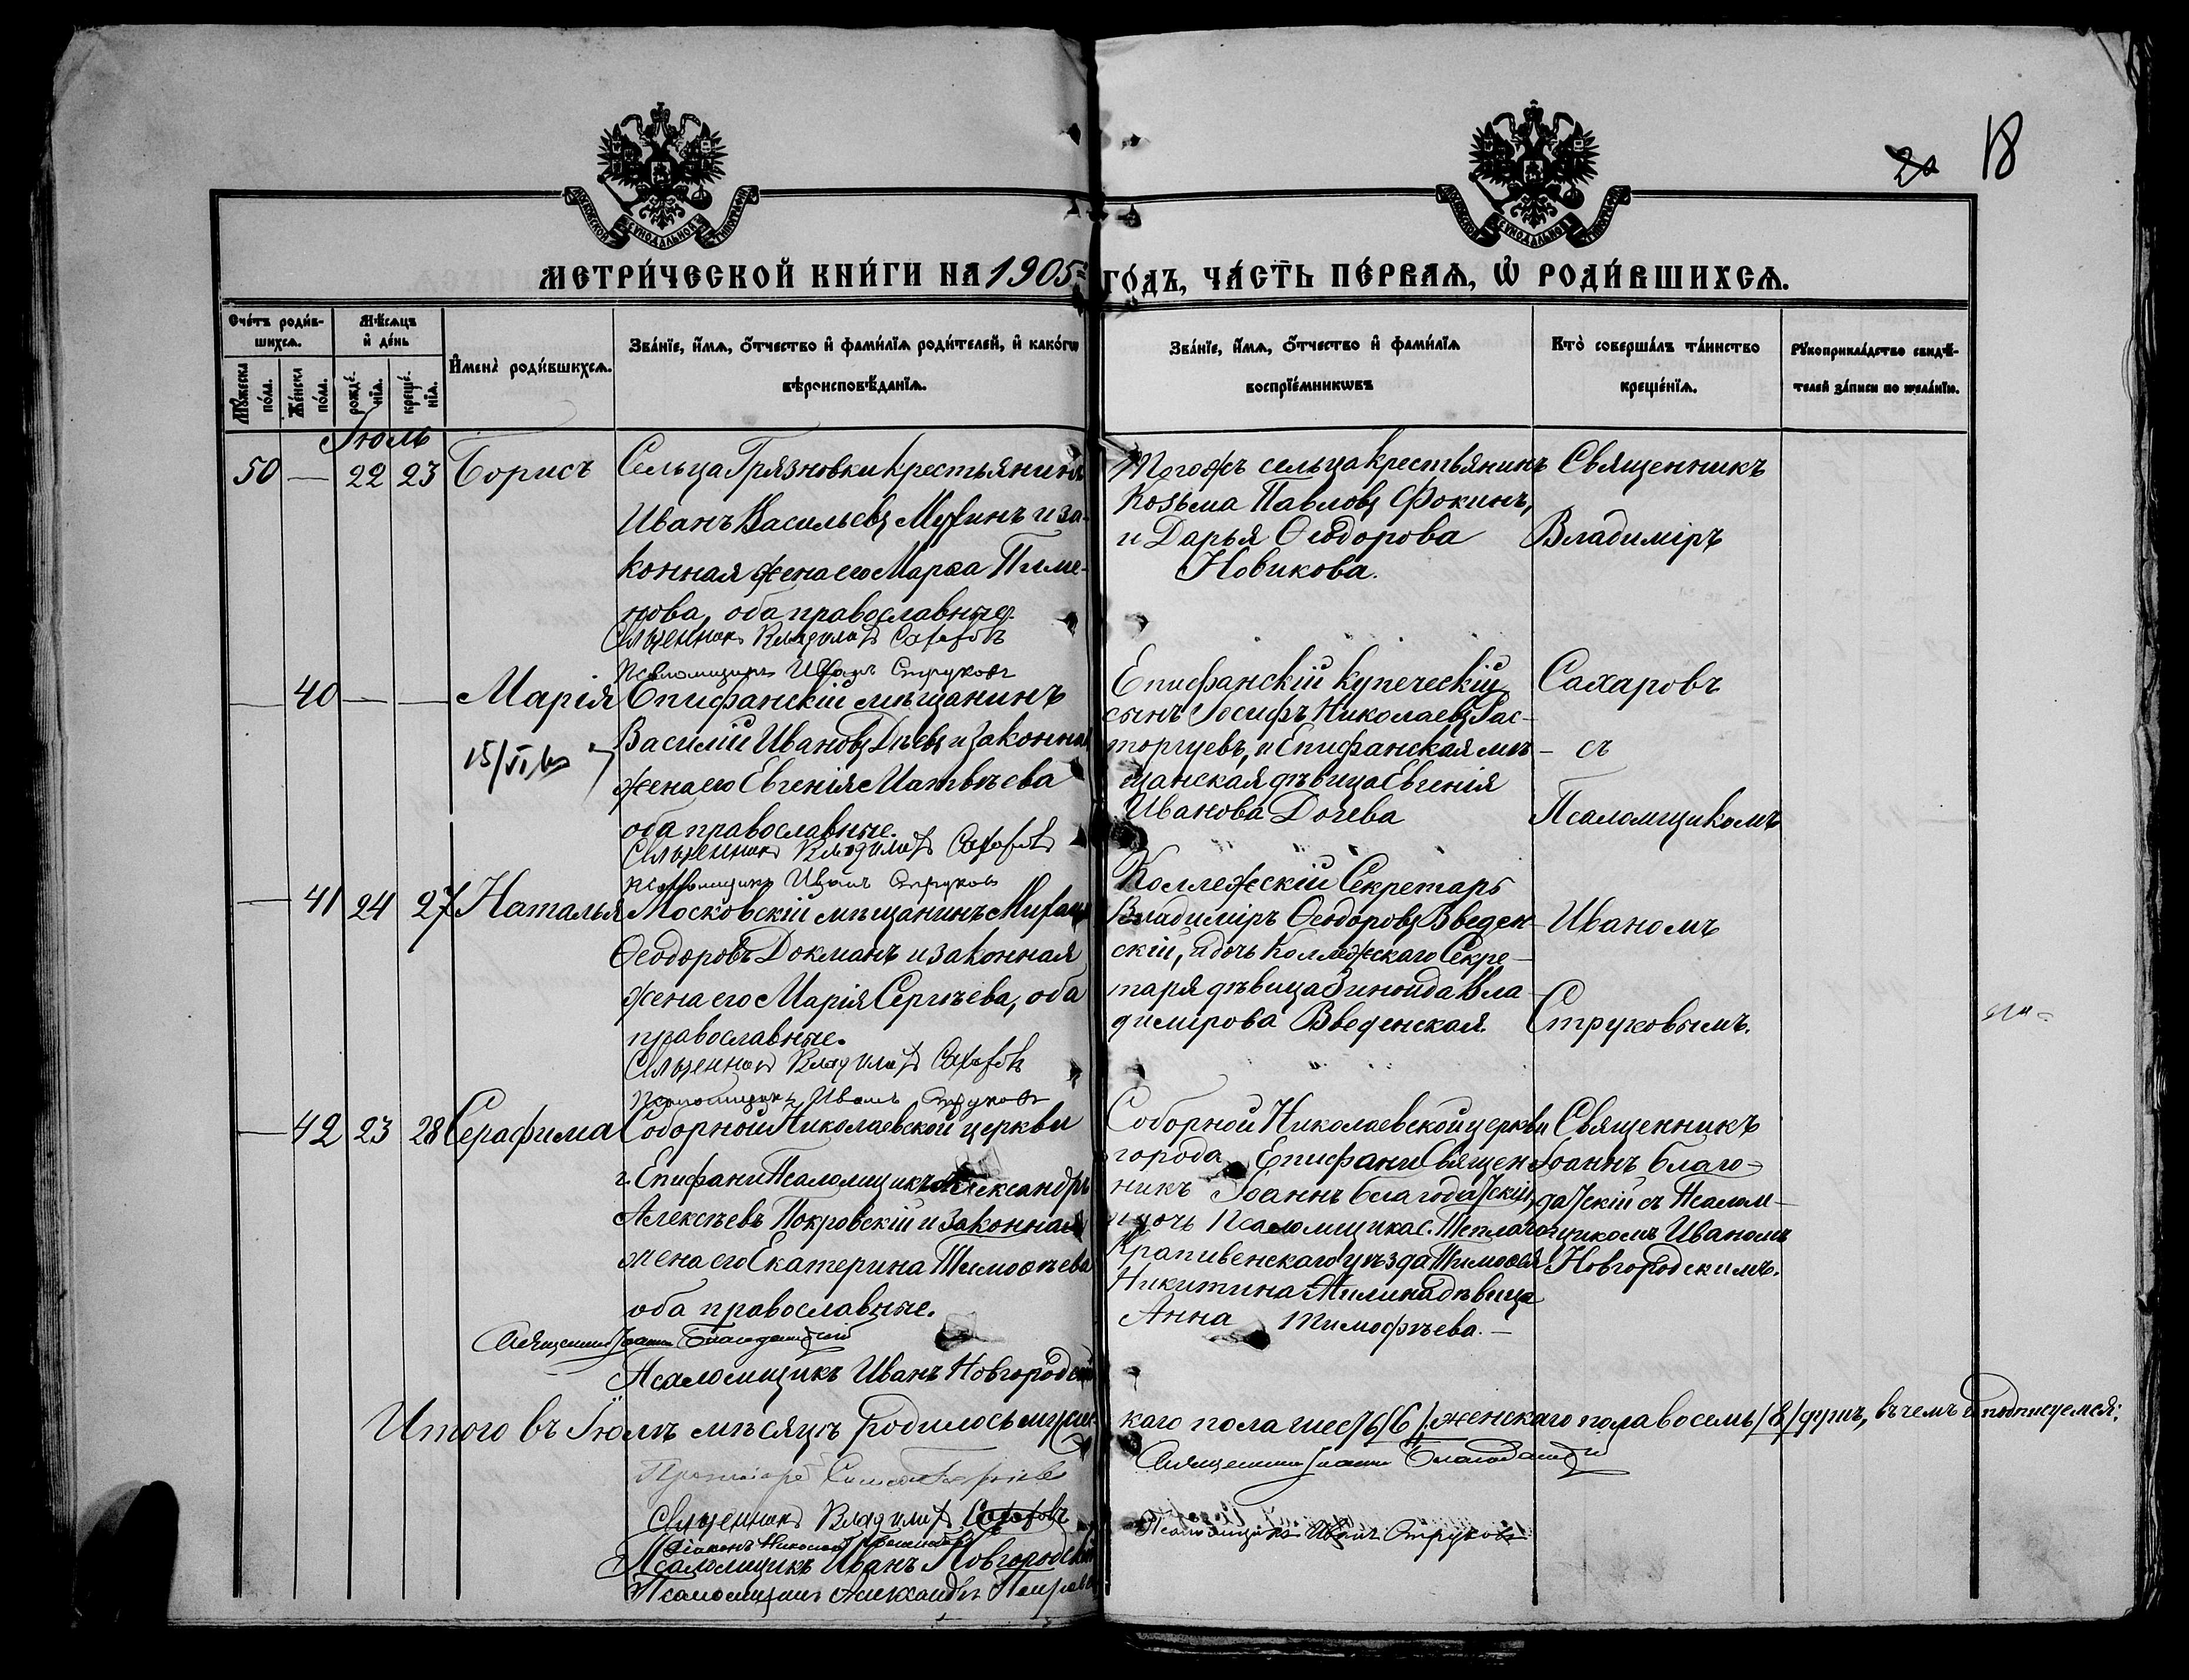 18
МЕТРИ́ЧЕСКОЙ КНИ́ГИ НА 1905 ГО́ДЪ, ЧА́СТЬ ПЕ́РВАѦ, Ѡ҆ РОДИ́ВШИХСѦ.
Сче́тъ роди́в-
шихсѧ.
Мꙋ́жеска по́ла.
Же́нска по́ла.
Мѣ́сѧцъ
и҆ де́нь
рожде́-
нїѧ.
креще́-
нїѧ.
И҆мена̀ роди́вшихсѧ.
Зва́нїе, и҆́мѧ, ѻ҆́тчество и҆ фами́лїѧ роди́телей, и҆ како́гѡ
вѣроисповѣ́данїѧ.
Зва́нїе, и҆́мѧ, ѻ҆́тчество и҆ фами́лїѧ
воспрїе́мникѡвъ
Кто̀ соверша́лъ та́инство
креще́нїѧ.
Рꙋкоприкла́дство свидѣ́-
телей за́писи по жела́нїю.
Іюль
50 — 22 23 Борисъ
Сельца Грязновки крестьянинъ
Иванъ Васильевъ Мухинъ и за-
конная жена его Марѳа Пиме-
нова, оба православные.
Священникъ Владиміръ Сахаровъ
Псаломщикъ Иванъ Струковъ
Тогожъ сельца крестьянинъ
Козьма Павловъ Фокинъ,
и Дарья Ѳеодорова
Новикова.
Священникъ
Владиміръ
— 40 — — Марія
Епифанскій мѣщанинъ
Василій Ивановъ и законная
жена его Евгенія Матвѣева
оба православные.
Священникъ Владиміръ Сахаровъ
Псаломщикъ Иванъ Струковъ
Епифанскій купеческій
сынъ Іосифъ Николаевъ Рас-
торгуевъ, и Епифанская мѣ-
щанская дѣвица Евгенія
Иванова
Сахаровъ
съ
Псаломщикомъ
— 41 24 27 Наталья
Московскій мѣщанинъ Михаилъ
Ѳеодоровъ Докманъ и законная
жена его Марія Сергѣева, оба
православные.
Священникъ Владиміръ Сахаровъ
Псаломщикъ Иванъ Струковъ
Коллежскій Секретарь
Владиміръ Ѳеодоровъ Введен-
скій, и дочь Коллежскаго Секре-
таря дѣвица Зинаида Вла-
димірова Введенская.
Иваномъ
Струковымъ.
— 42 23 28 Серафима
Соборной Николаевской церкви
г. Епифани Псаломщикъ Александръ
Алексѣевъ Покровскій и законная
жена его Екатерина Тимоѳѣева
оба православные.
Священникъ Іоаннъ Благодатскій
Псаломщикъ Иванъ Новгородскій
Соборной Николаевской церкви
города Епифани Священ-
никъ Іоаннъ Благодатскій,
и дочь Псаломщика с. Теплаго
Крапивенскаго уѣзда Тимоѳея
Никитина Милина дѣвица
Анна Тимофѣева. —
Священникъ
Іоаннъ Благо-
датскій съ Псалом-
щикомъ Иваномъ
Новгородскимъ.
Итого въ Іюлѣ мѣсяцѣ родилось мужс-каго пола шесть /6/, женскаго пола восемь /8/ душъ, въ чемъ и подписуемся:
Священникъ Іоаннъ Благодатскій
Священникъ Владиміръ Сахаровъ
Псаломщикъ Иванъ Струковъ
Псаломщикъ Иванъ Новгородскій
Псаломщикъ Александръ Покровскій